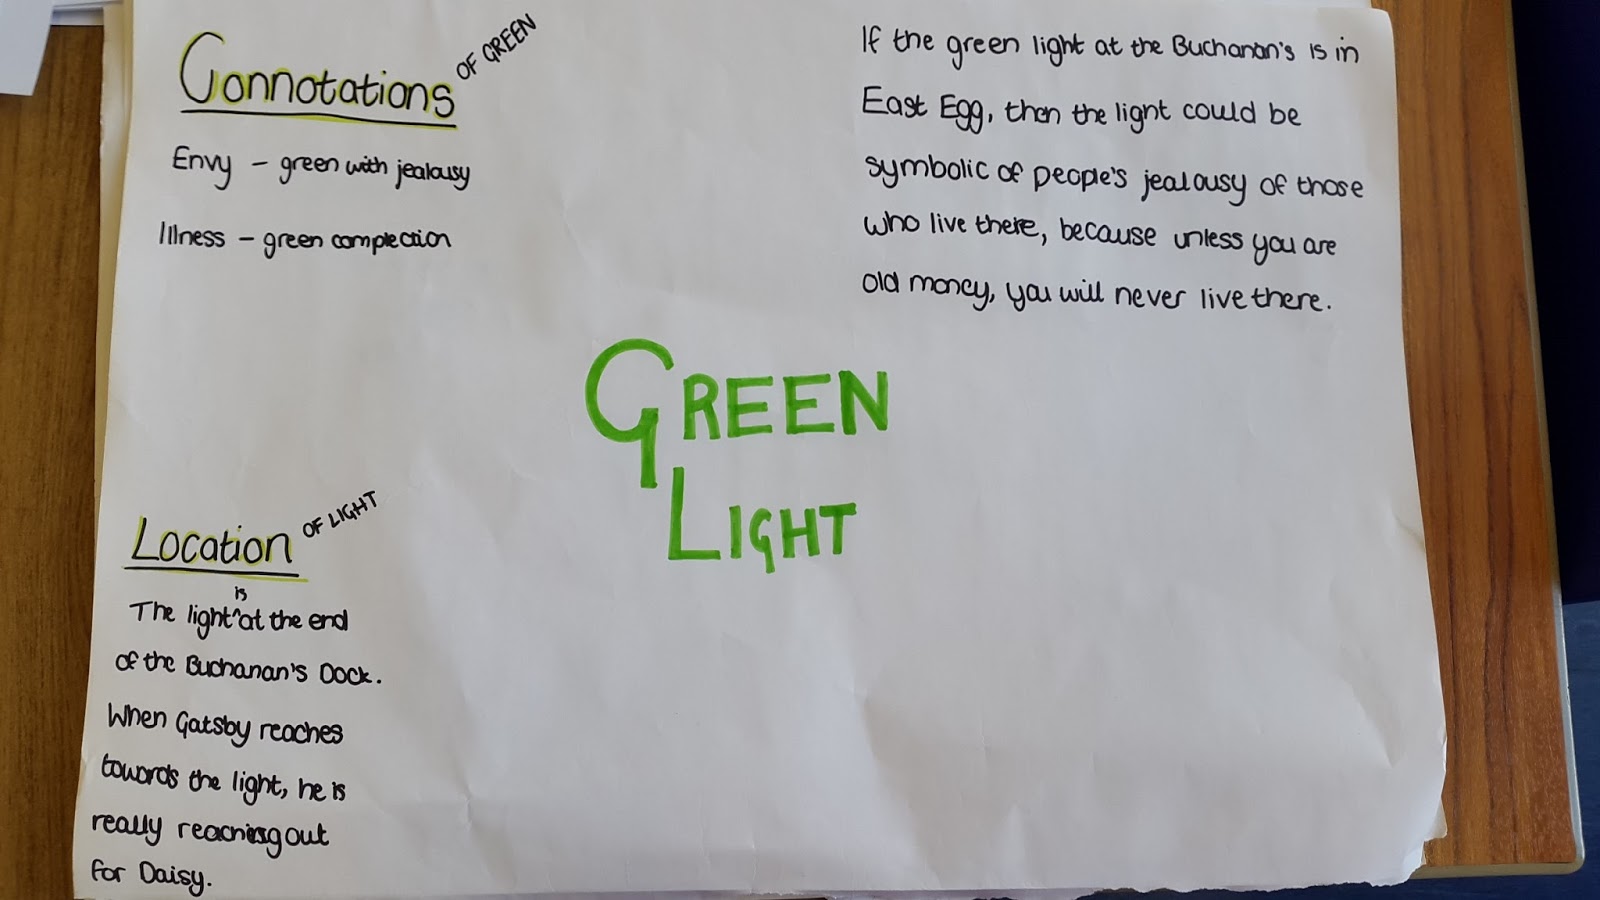 Connotations OF GREEN
Envy – green with jealousy
Illness – green complection
If the green light at the Buchanan's is in
East Egg, then the light could be
symbolic of people's jealousy of those
who live there, because unless you are
old money, you will never live there.
GREEN
LIGHT
Location OF LIGHT
is
The light ^ at the end
of the Buchanan's Dock.
When Gatsby reaches
towards the light, he is
really reaching out
for Daisy.